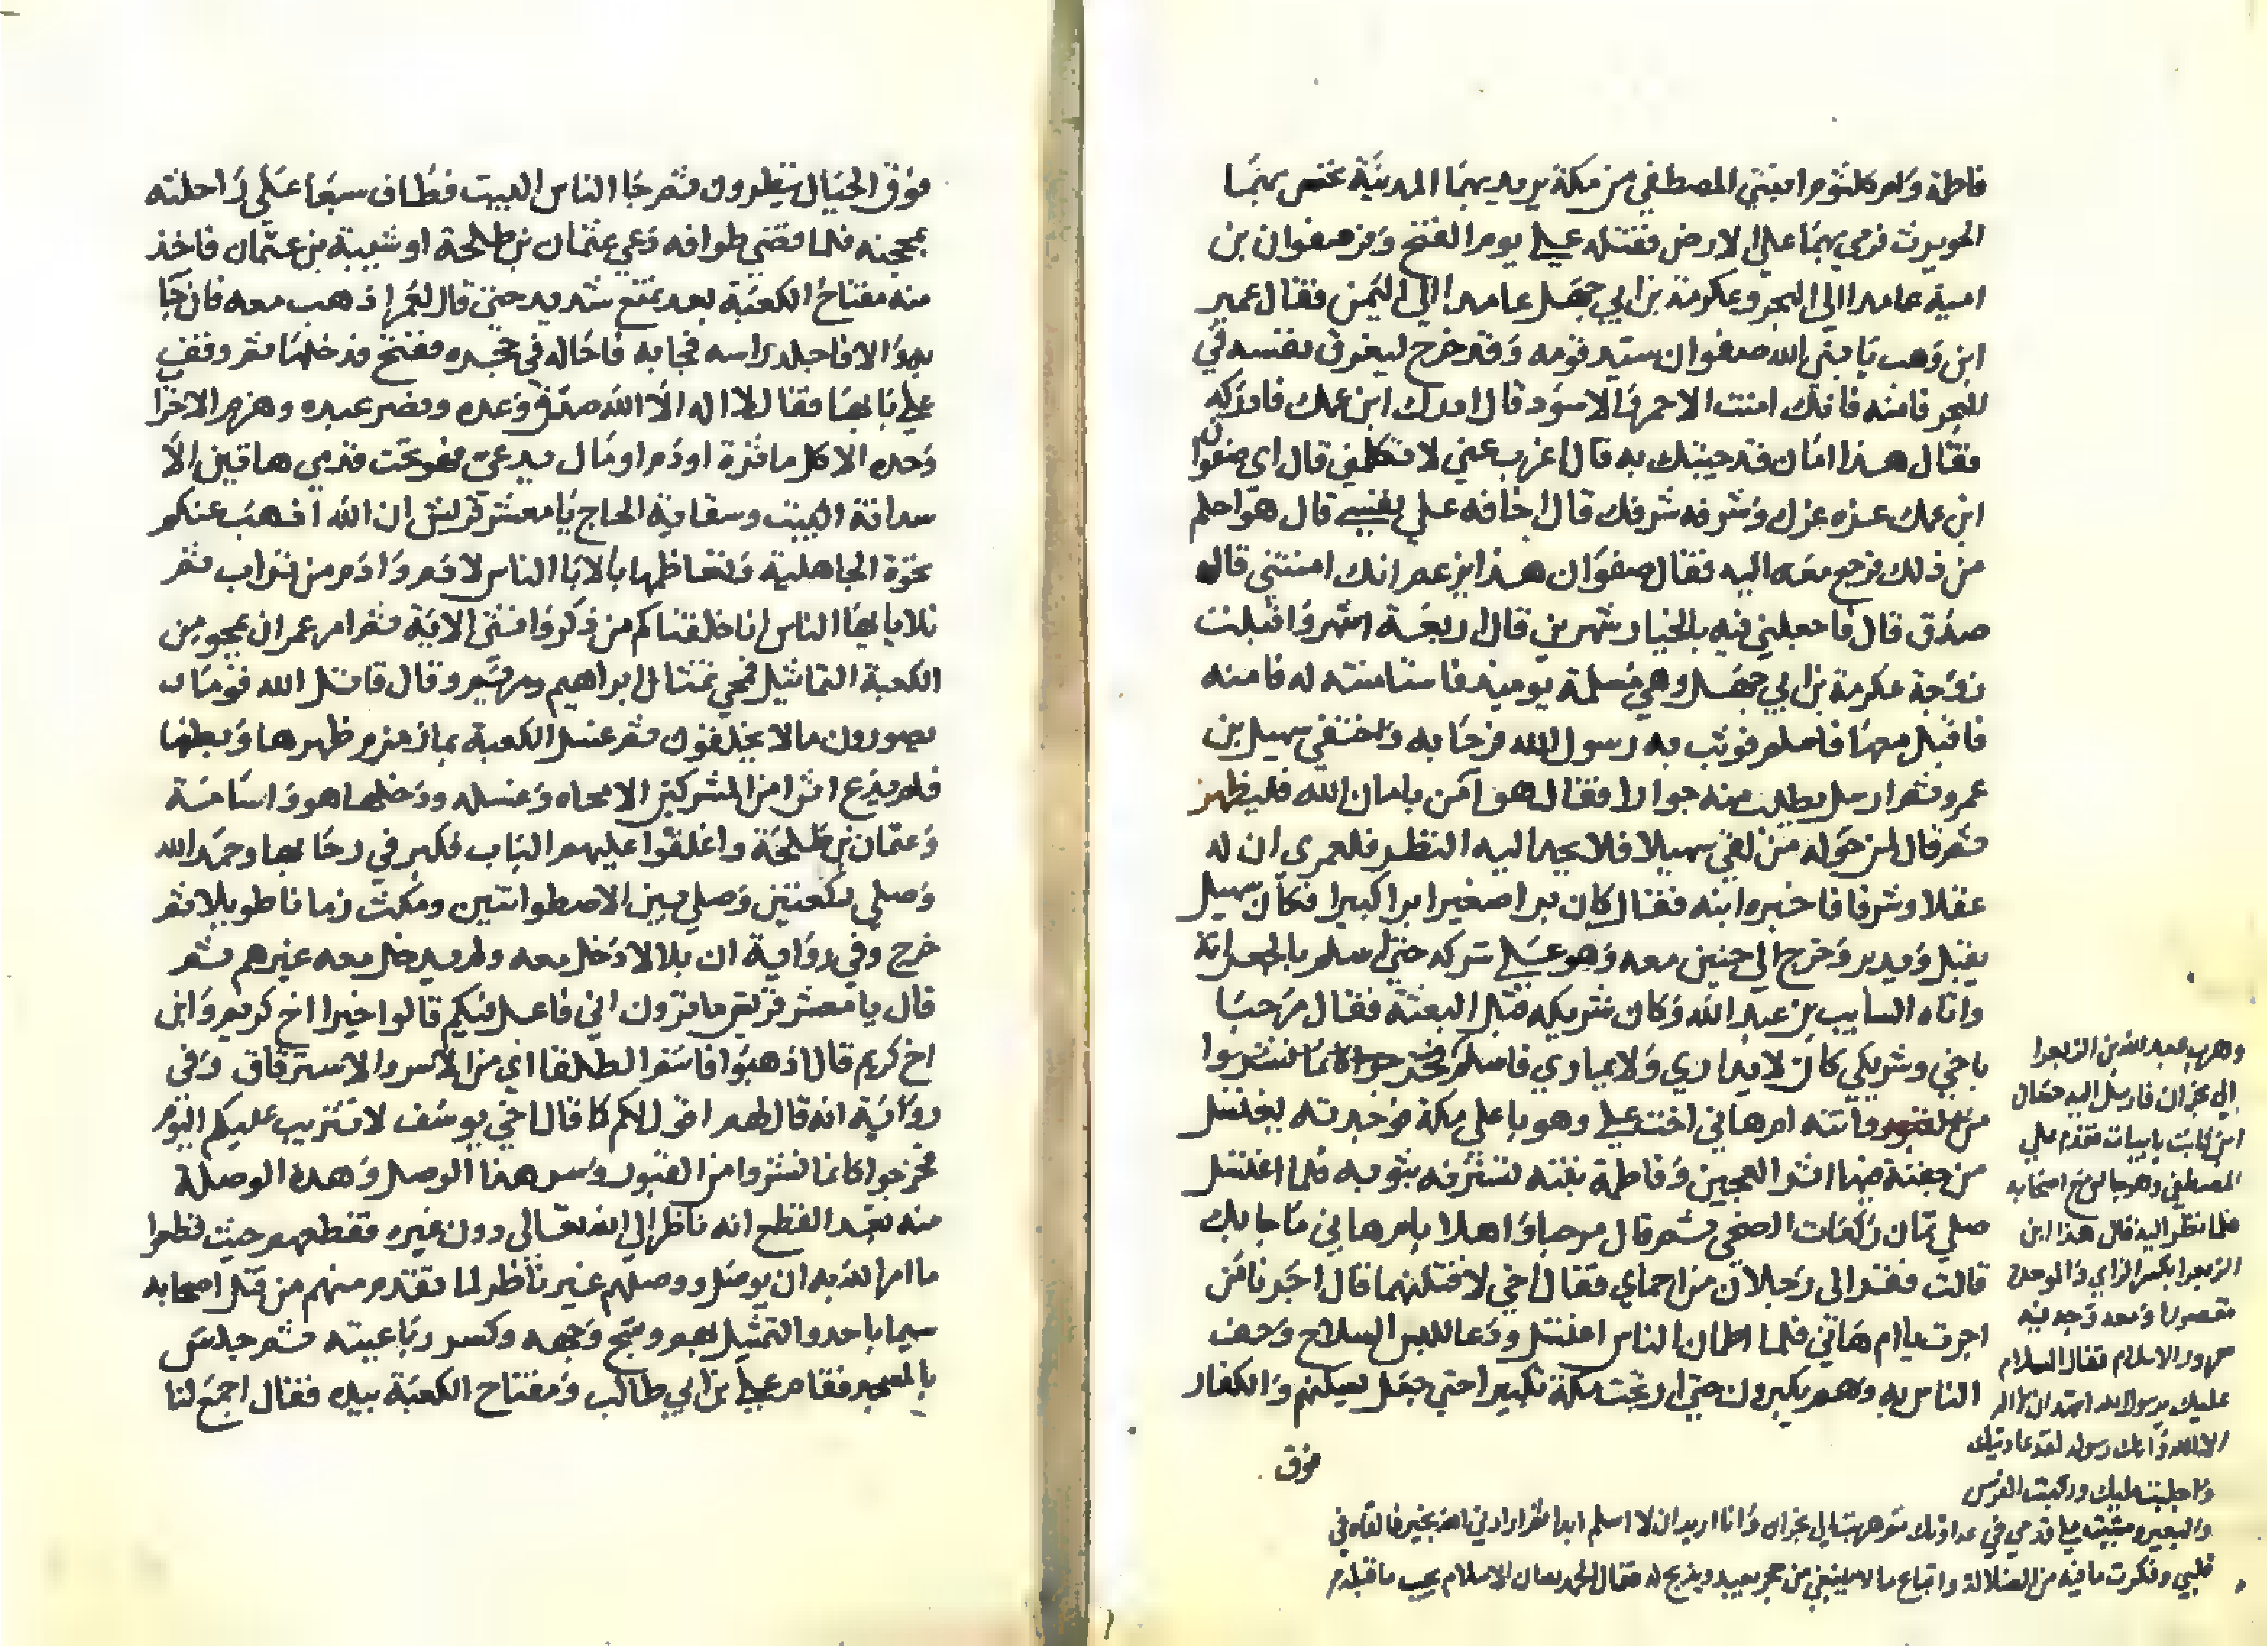 فاطمة وام كلثوم ابنتي المصطفي من مكة يريد بهما المدينة نخس بهما
الحويرث فرمي بهما علي الارض فقتله علي يوم الفتح وفر صفوان بن
امية عامدا الي البحر وعكرمة بن ابي جهل عامدا الي اليمن فقال عمير
ابن وهب يا نبي الله صفوان سيد قومه وقد خرج ليغرق نفسه في
البحر فامنه فانك امنت الاحمر والاسود قال ادرك ابن عمك فادركه
فقال هذا امان قد جيتك به قال اغرب عني لا تكلمني قال اي صفوان
ابن عمك عزه عزك وشرفه شرفك قال اخافه علي نفسي قال هو احلم
من ذلك فرجع معه اليه فقال صفوان هذا يزعم انك امنتني قال
صدق قال فاجعلني فيه بالخيار شهرين قال اربعة اشهر واقبلت
زوجة عكرمة بن ابي جهل وهي مسلمة يوميذ فاستامنته له فامنه
فاقبل معها فاسلم فوثب به رسول الله فرحا به واختفي سهيل بن
عمرو ثم ارسل يطلب منه جوارا فقال هو آمن بامان الله فليظهر
ثم قال لمن حوله من لقي سهيلا فلا يحد اليه النظر فلعمري ان له
عقلا وشرفا فاخبروا ابنه فقال كان برا صغيرا برا كبيرا فكان سهيل
يقبل ويدبر وخرج الي حنين معه وهو علي شركه حتي اسلم بالجعرانة
واتاه السايب بن عبد الله وكان شريكه قبل البعثة فقال مرحبا
باخي وشريكي كان لا يداري ولا يماري فاسلم كانما نشروا
من القبور واتته ام هاني اخت علي وهو باعلي مكة فوجدته يغتسل
من جفنة فيها اثر العجين وفاطمة بنته تستره بثوبه فلما اغتسل
صلي ثمان ركعات الضحي ثم قال مرحبا واهلا بام هاني ما جا بك
قالت فر الي رجلان من احماي فقال اخي لاقتلنهما قال اجرنا من
اجرت يا ام هاني فلما اطمان الناس اغتسل ودعا للبس السلاح وحف
الناس به وهم يكبرون حتي ارتجت مكة تكبيرا حتي جعل يسكتهم والكفار
فوق
وهرب عبد الله بن الزبعرا
الي نجران فارسل اليه حسان
ابن ثابت بابيات فقدم علي
المصطفي وهو جالس مع اصحابه
فلما نظر اليه قال هذا ابن
الزبعرا بكسر الزاي والموحدة
مقصورا ومعه وجه فيه
نور الاسلام فقال السلام
عليك يرسول الله اشهد ان لا اله
الا الله وانك رسوله لقد عاديتك
واجلبت عليك وركبت الفرس
والبعير ومشيت علي قدمي في عداوتك ثم هربت الي نجران وانا اريد ان لا اسلم ابدا ثم ارادني الله بخير فالقاه في
قلبي وفكرت ما فيه من الضلالة واتباع ما لا ينبغي من حجر يعبد ويذبح له فقال الحمد لله ان الاسلام يجب ما قبله
فوق الجبال ينظرون ثم جا الناس البيت فطاف سبعا علي راحلته
بمحجنه فلما قضي طوافه دعي عثمان بن طلحة او شيبة بن عثمان فاخذ
منه مفتاح الكعبة بعد تمنع شديد حتي قال لعمر اذهب معه فان جا
به والا فاجلد راسه فجا به فاحاله في حجره ففتح فدخلها ثم وقف
علي بابها فقال لا اله الا الله صدق وعده ونصر عبده وهزم الاحزا
وحده الا كل ماثرة او دم او مال يدعي فهو تحت قدمي هاتين الا
سدانة البيت وسقاية الحاج يا معشر قريش ان الله اذهب عنكم
نخوة الجاهلية وتعاظمها بالابا الناس لادم وادم من تراب ثم
تلا يا ايها الناس انا خلقناكم من ذكر وانثي الاية ثم امر عمر ان يمحو من
الكعبة التماثيل فمحي تمثال ابراهيم ومريم وقال قاتل الله قوما
يصورون ما لا يخلقون ثم غسل الكعبة بماز مزم ظهرها وبطنها
فلم يدع اثرا من المشركين الا محاه وغسله ودخلها هو واسامة
وعثمان بن طلحة واغلقوا عليهم الباب فكبر في رحابها وحمد الله
وصلي ركعتين وصلي بين الاصطوانتين ومكث زمانا طويلا ثم
خرج وفي رواية ان بلالا دخل معه ولم يدخل معه غيرهم ثم
قال يا معشر قريش ما ترون اني فاعل فيكم قالوا خيرا اخ كريم وابن
اخ كريم قال اذهبوا فانتم الطلقا اي من الاسر والاسترقاق وفي
رواية انه قال لهم اقول لكم كما قال اخي يوسف لا تثريب عليكم اليوم
فخرجوا كانما نشروا من القبور وسر هذا الوصل وهذه الوصلة
منه بعد القطع انه ناظر الي الله تعالي دون غيره فقطعهم حيث قطعوا
ما امر الله به ان يوصل ووصلهم غير ناظر لما تقدم منهم من قتل اصحابه
سيما باحد والتمثيل بهم وشج وجهه وكسر رباعيته ثم جلس
بالمسجد فقام علي بن ابي طالب ومفتاح الكعبة بيده فقال اجمع لنا